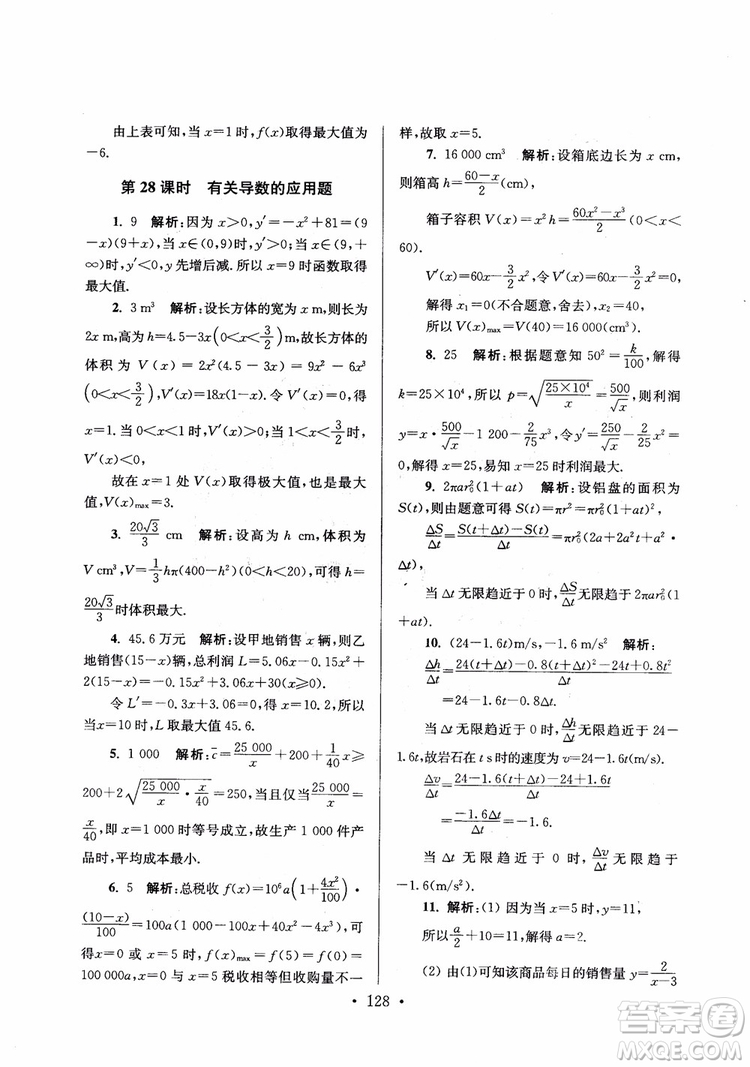 由上表可知,当 x=1 时,f(x)取得最大值为
-6.
第 28 课时 有关导数的应用题
1. 9 解析:因为 x>0,y′=-x²+81=(9
-x)(9+x),当 x∈(0,9)时,y′>0,当 x∈(9,+
∞)时,y′<0,y 先增后减.所以 x=9 时函数取得
最大值.
2. 3 m³ 解析:设长方体的宽为 x m,则长为
2x m,高为 h=4.5-3x(0<x<3/2)m,故长方体的
体积为 V(x)=2x²(4.5-3x)=9x²-6x³
(0<x<3/2),V′(x)=18x(1-x).令 V′(x)=0,得
x=1.当 0<x<1 时,V′(x)>0;当 1<x<3/2时,
V′(x)<0,
故在 x=1 处 V(x)取得极大值,也是最大
值,V(x)max=3.
3. 20√3/3 cm 解析:设高为 h cm,体积为
V cm³,V=1/3hπ(400-h²)(0<h<20),可知 h=
20√3/3时体积最大.
4. 45.6 万元 解析:设甲地销售 x 辆,则乙
地销售(15-x)辆,总利润 L=5.06x-0.15x²+
2(15-x)=-0.15x²+3.06x+30(x≥0).
令 L′=-0.3x+3.06=0,则 x=10.2.
当x=10 时,L 取最大值 45.6.
5. 1 000 解析:c̄=25 000/x+200+1/40x≥
200+2√(25 000/x·x/40)=250,当且仅当25 000/x=
x/40,即 x=1 000 时等号成立,故生产 1 000 件产
品时,平均成本最小.
6. 5 解析:总税收 f(x)=10⁶a(1+4x²/100)
(10-x)/100=100a(1 000-100x+40x²-4x³),可
得x=0 或 x=5 时,f(x)max=f(5)=f(0)=
100 000a,x=0 与 x=5 税收相等但收购量不一
样,故取 x=5.
7. 16 000 cm³ 解析:设箱底边长为 x cm,
则箱高 h=(60-x)/2(cm),
箱子容积 V(x)=x²h=(60x²-x³)/2(0<x<
60).
V′(x)=60x-3/2x²,令 V′(x)=60x-3/2x²=0,
解得 x₁=0(不合题意,舍去),x₂=40,
所以 V(x)max=V(40)=16 000(cm³).
8. 25 解析:根据题意知 50²=k/100,解得
k=25×10⁴,所以 p=√(25×10⁴/x)=500/√x,则利润
y=x·500/√x-1 200-2/75x³,令 y′=250/√x-2/25x²=
0,解得 x=25,易知 x=25 时利润最大.
9. 2πar₀²(1+at) 解析:设铝盘的面积为
S(t),则由题意可得 S(t)=πr²=πr₀²(1+at)²,
ΔS/Δt=(S(t+Δt)-S(t))/Δt=πr₀²(2a+2a²t+
a²Δt).
当 Δt 无限趋近于 0 时,ΔS/Δt无限趋于 2πar₀²(1+
at).
10. (24-1.6t)m/s,-1.6(m/s²) 解析:
Δh/Δt=(24(t+Δt)-0.8(t+Δt)²-24t+0.8t²)/Δt
=24-1.6t-0.8Δt.
当 Δt 无限趋近于 0 时,Δh/Δt无限趋于 24-
1.6t,故岩石在 t s 时的速度为 v=24-1.6t(m/s).
Δv/Δt=(24-1.6(t+Δt)-24+1.6t)/Δt
=-1.6Δt/Δt=-1.6.
当 Δt 无限趋近于 0 时,Δv/Δt无限趋于
-1.6(m/s²).
11. 解析:(1) 因为当 x=5 时,y=11,
所以a/2+10=11,解得 a=2.
(2) 由(1)可知该商品每日的销售量 y=2/(x-3)
· 128 ·
答案圈
MXQE.COM